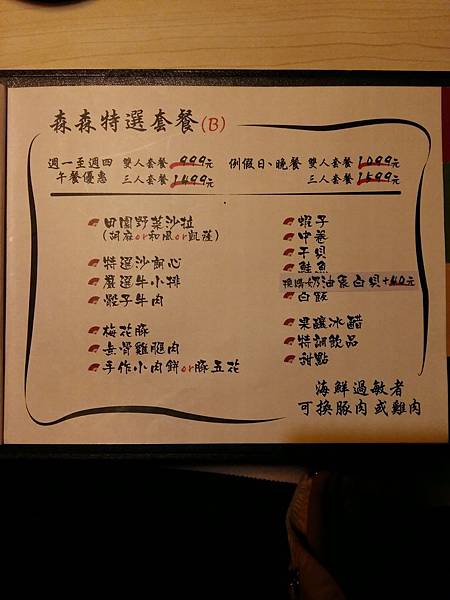 森森特選套餐(B)
週一至週四 雙人套餐 999元 例假日、晚餐 雙人套餐 1099元
午餐優惠 三人套餐 1499元 三人套餐 1599元
田園野菜沙拉
(胡麻or和風or凱薩)
特選沙朗心
嚴選牛小排
骰子牛肉
梅花豚
無骨雞腿肉
手作小肉餅or豚五花
蝦子
中卷
干貝
鮭魚
換購奶油焗白貝+40元
白飯
果釀冰醋
特調飲品
甜點
海鮮過敏者
可換豚肉或雞肉